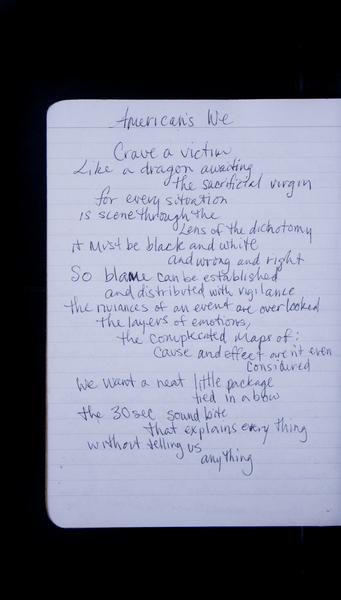 American's We
Crave a victim
Like a dragon awaiting
the sacrificial virgin
for every situation
is scene through the
Lens of the dichotomy
it must be black and white
and wrong and right
So blame can be established
and distributed with vigilance
the nuances of an event are overlooked
the layers of emotions,
the complecated maps of:
cause and effect aren't even
considered
We want a neat little package
tied in a bow
the 30sec sound bite
that explains every thing
without telling us
anything